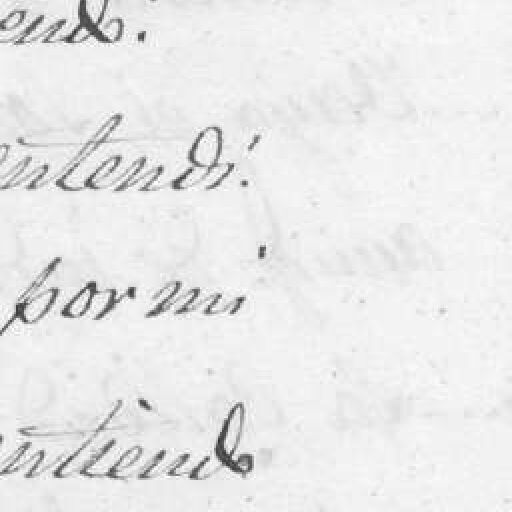 entendi.
por mi
entiendo